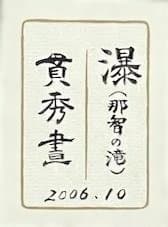 瀑(那智の滝)
貫秀畫
2006.10